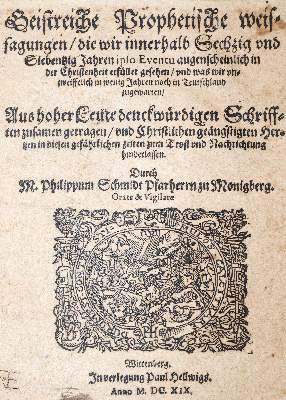 Geistreiche Prophetische weis-
sagungen / die wir innerhalb Sechzig und
Siebentzig Jahren ipso Eventu augenscheinlich in
der Christenheit erfüllet gesehen / und was wir un-
zweiflich in wenig Jahren noch in Teutschland
zugewarten /
Aus hoher Leute denckwürdigen Schriff-
ten zusamen getragen / und Christlichen geängstigten Her-
tzen in diesen gefährlichen zeiten zum Trost und Nachrichtung
hinderlassen.
Durch
M. Philippum Schmidt Pfarherrn zu Monigberg.
Orate & Vigilate
Wittenberg.
In verlegung Paul Hellwigs.
Anno M. DC. XIX.